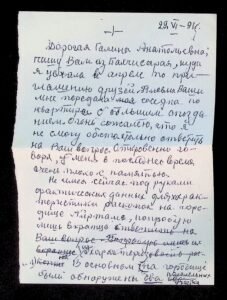 -1-
29.VI-94г.
Дорогая Галина Анатольевна,
пишу Вам из Бахчисарая, куда
я уехала в апреле по при-
глашению друзей. Письмо Ваше
мне передала моя соседка по
квартире с большим опозда-
нием. Очень сожалею, что я
не смогу обстоятельно ответить
на Ваш вопрос. Откровенно го-
воря, у меня в последнее время
очень плохо с памятью.
Не имея сейчас под руками
фактических данных для харак-
теристики раскопок на горо-
дище Айртам, попробую
лишь вкратце ответить на
Ваш вопрос
В основном на городище
были обнаружены два